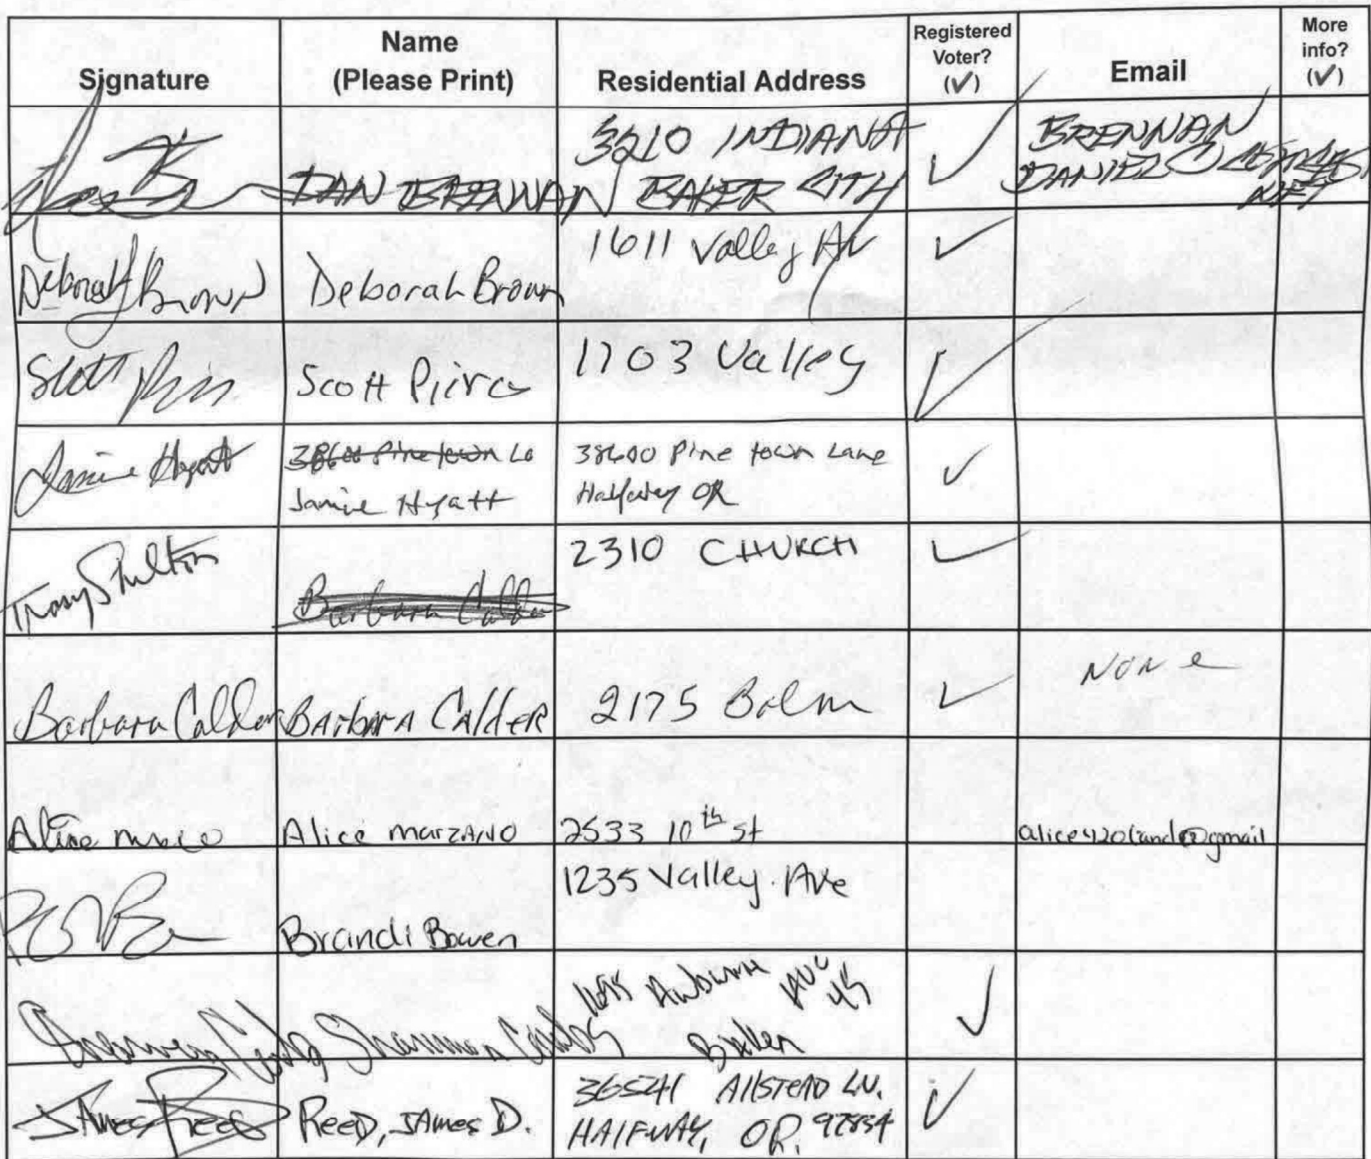 Signature
Name
(Please Print)
Residential Address
Registered
Voter?
(✓)
Email
More
info?
(✓)
DAN BRENNAN
3210 INDIANA
BAKER CITY
✓
BRENNAN
DANIEL
NET
Deborah Brown
Deborah Brown
1611 Valley Av
✓
Scott
Scott Pierce
1703 Valley
✓
Jamie Hyatt
Pine town Ln
Jamie Hyatt
38600 Pine town Lane
Halfway OR
✓
Tracy Shelton
Barbara Calder
2310 CHURCH
✓
Barbara Calder
BArbArA CAldER
2175 Balm
✓
None
Alice
Alice marzANO
2533 10th st
@gmail
Brandi Bowen
1235 Valley Ave
Shannon
1695 Auburn Ave
Baker
✓
James Reed
ReeD, JAmes D.
36541 AllSTEAD LN.
HAlFWAY, OR. 97834
✓